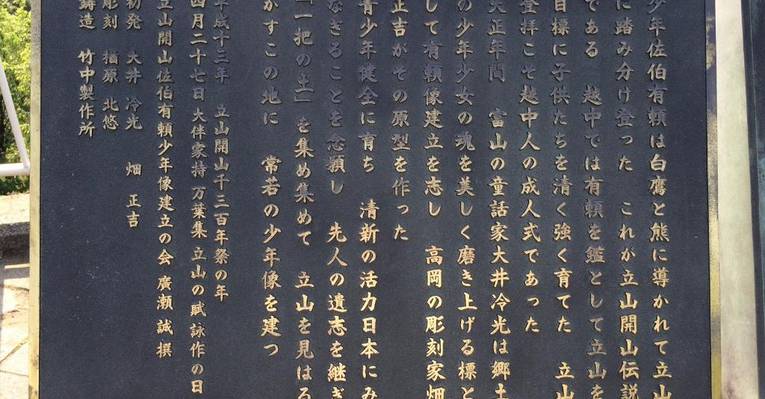 少年佐伯有頼は白鷹と熊に導かれて立山
に踏み分け登った　これが立山開山伝説
である　越中では有頼を鑑として立山を
目標に子供たちを清く強く育てた　立山
登拝こそ越中人の成人式であった
大正年間　富山の童話家大井冷光は郷土
の少年少女の魂を美しく磨き上げる標と
して有頼像建立を志し　高岡の彫刻家畑
正吉がその原型を作った
青少年健全に育ち　清新の活力日本にみ
なぎることを念願し　先人の遺志を継ぎ
「一把の土」を集め集めて　立山を見はる
かすこの地に　常若の少年像を建つ
平成十三年　立山開山千三百年祭の年
四月二十七日　大伴家持　万葉集　立山の賦詠作の日
立山開山佐伯有頼少年像建立の会　廣瀬　誠　撰
初発　大井　冷光　　畑　正吉
彫刻　楢原　北悠
鋳造　竹中製作所